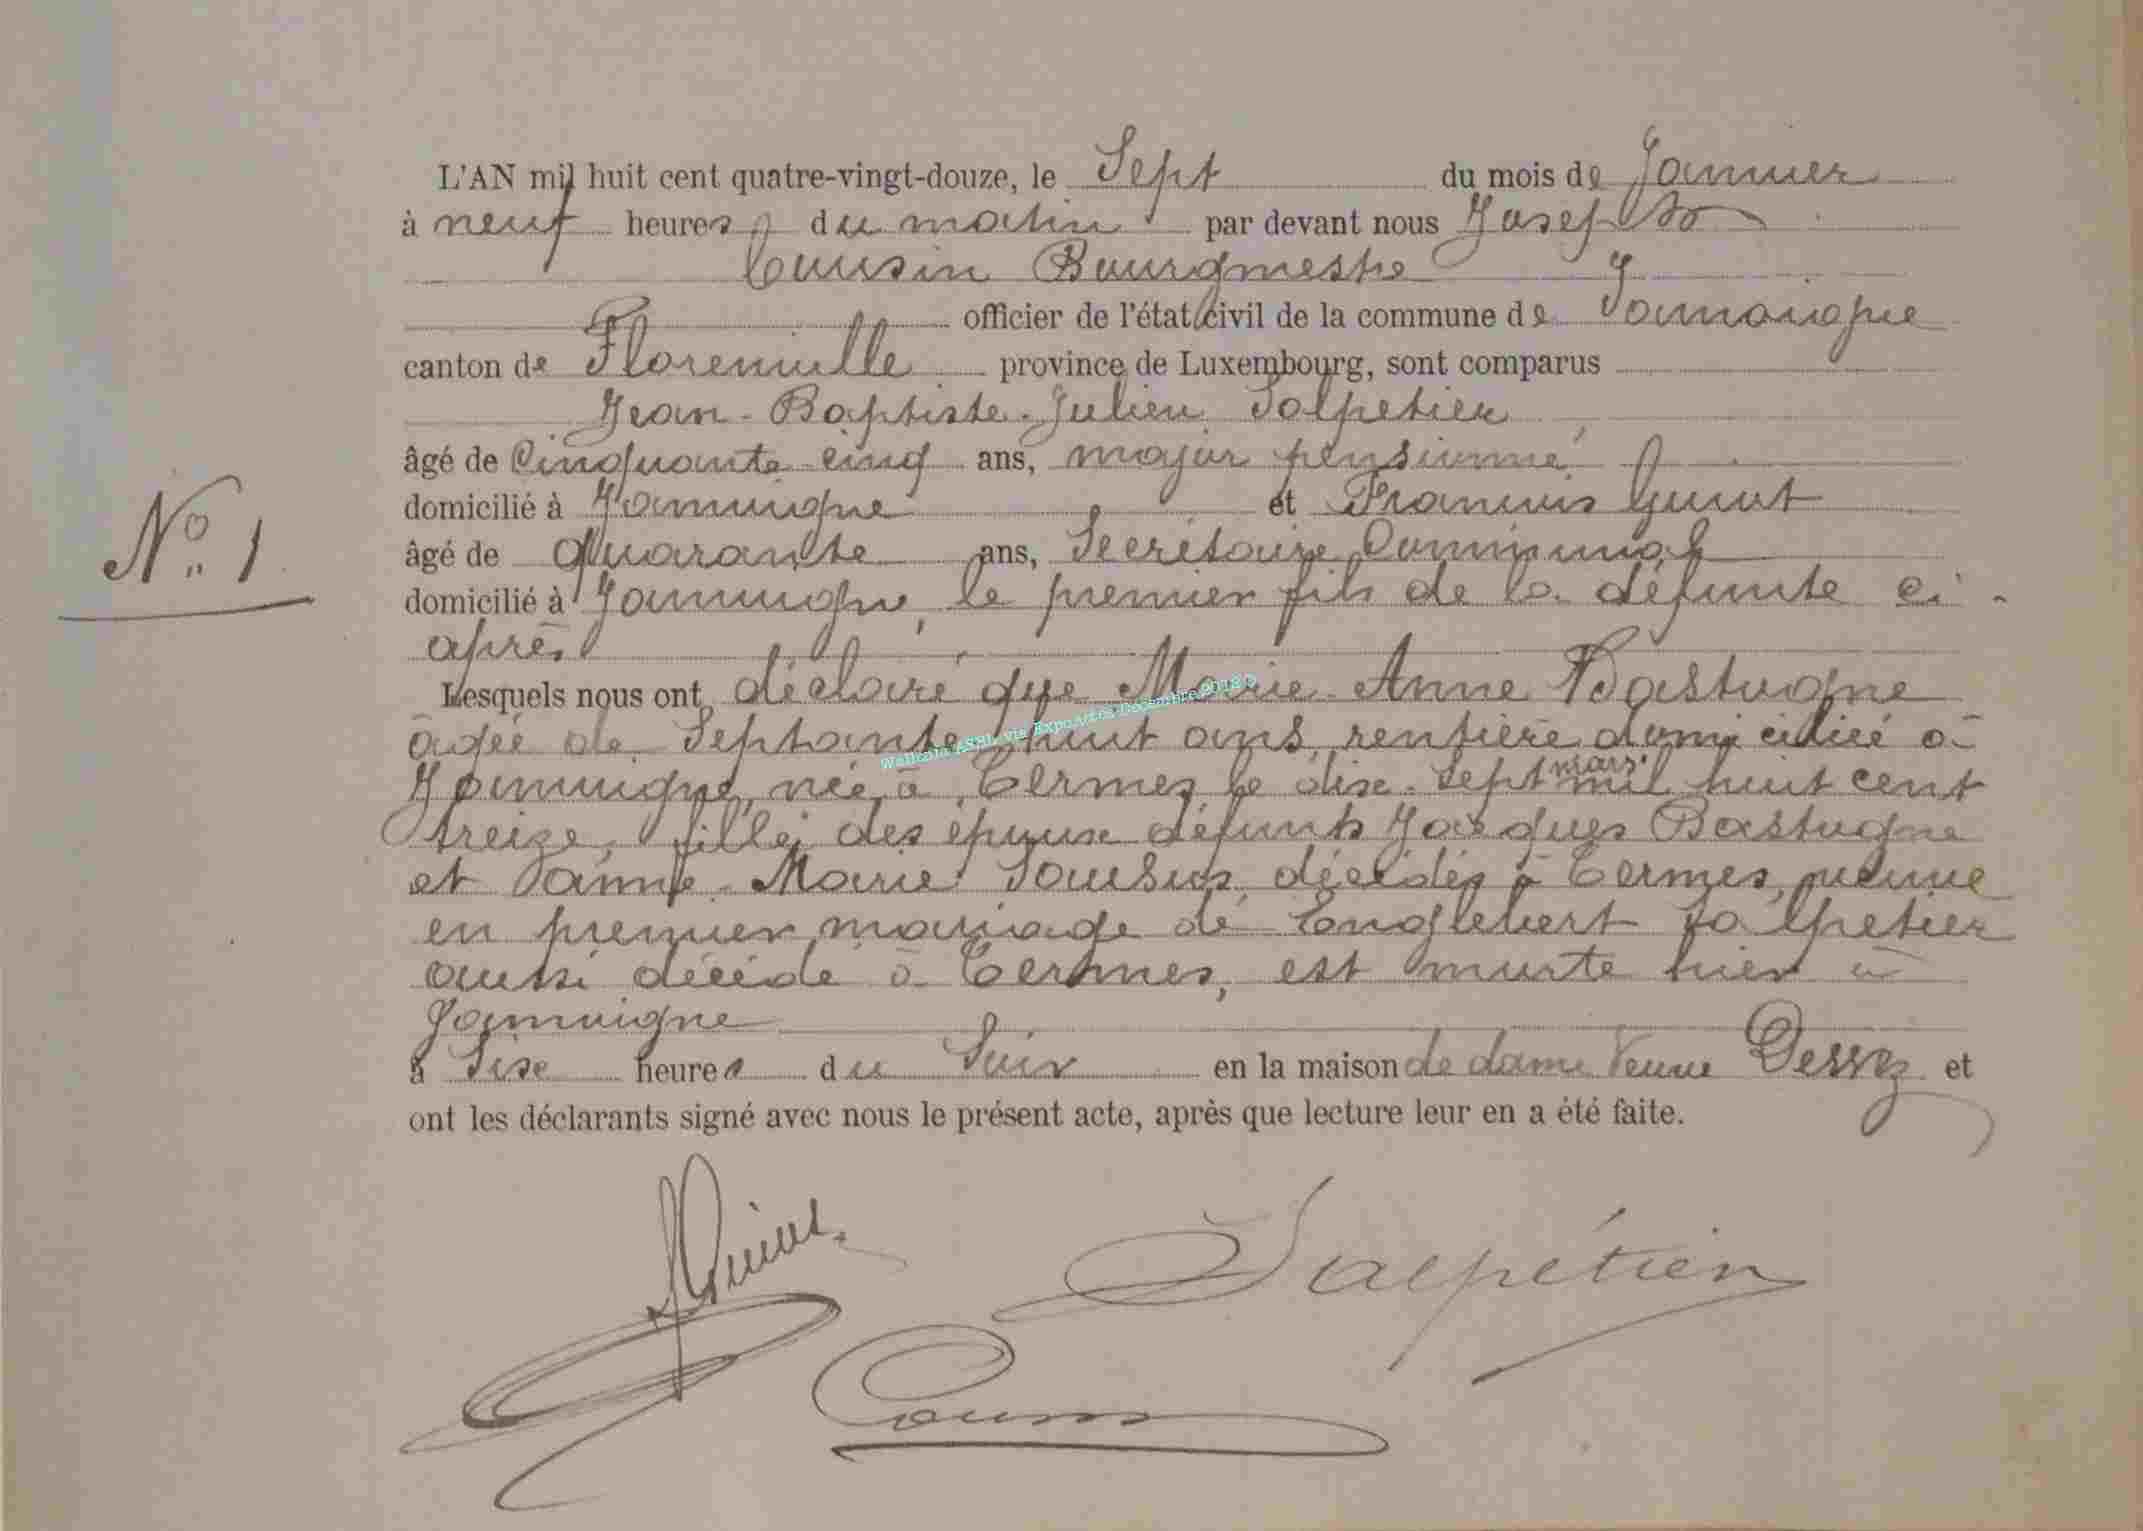 L'AN mil huit cent quatre-vingt-douze, le Sept du mois de Janvier
à neuf heures du matin par devant nous Joseph
Cousin Bourgmestre
officier de l'état civil de la commune de Jamoigne
canton de Florenville province de Luxembourg, sont comparus
Jean-Baptiste-Julien Salpetier
âgé de Cinquante cinq ans, major pensionné
domicilié à Jamoigne et François
âgé de Quarante ans, Secrétaire Communal
N° 1
domicilié à Jamoigne, le premier fils de la défunte ci-
après
Lesquels nous ont déclaré que Marie Anne Bastogne
âgée de Septante huit ans, rentière domiciliée à
Jamoigne, née à Termes le dix-sept mars mil huit cent
treize, fille des époux défunts Jacques Bastogne
et Anne-Marie décédés à Termes, veuve
en premier mariage de Englebert Salpetier
aussi décédé à Termes, est morte hier à
Jamoigne
à Six heures du Soir en la maison de dame Veuve et
ont les déclarants signé avec nous le présent acte, après que lecture leur en a été faite.
Salpétier
Cousin